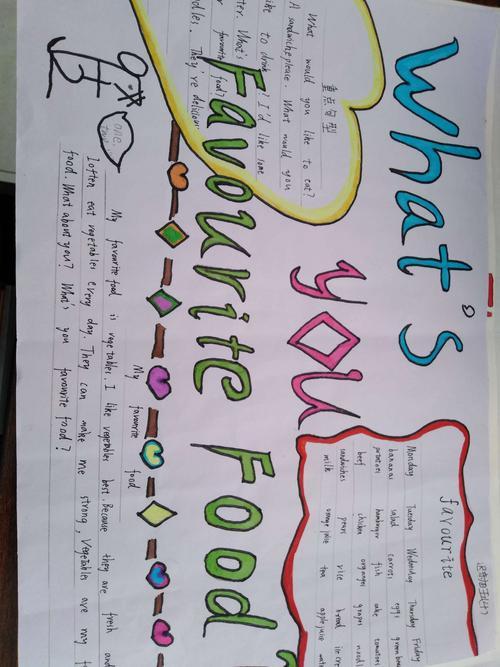 What's
you
Favourite Food
重点句型
What would you like to eat?
A sandwich please. What would you
like to drink? I'd like some
water. What's
favourite food?
noodles. They're delicious.
favourite
Monday Tuesday Wednesday Thursday Friday
bananas salad carrots eggs green beans
potatoes hamburger fish cake tomatoes
beef chicken oranges grapes noodles
sandwiches pears rice bread ice cream
milk orange juice tea apple juice water
My favourite food
My favourite food is vegetables. I like vegetables best. Because they are fresh and
I often eat vegetables every day. They can make me strong, Vegetables are my
food. What about you? What's you favourite food?